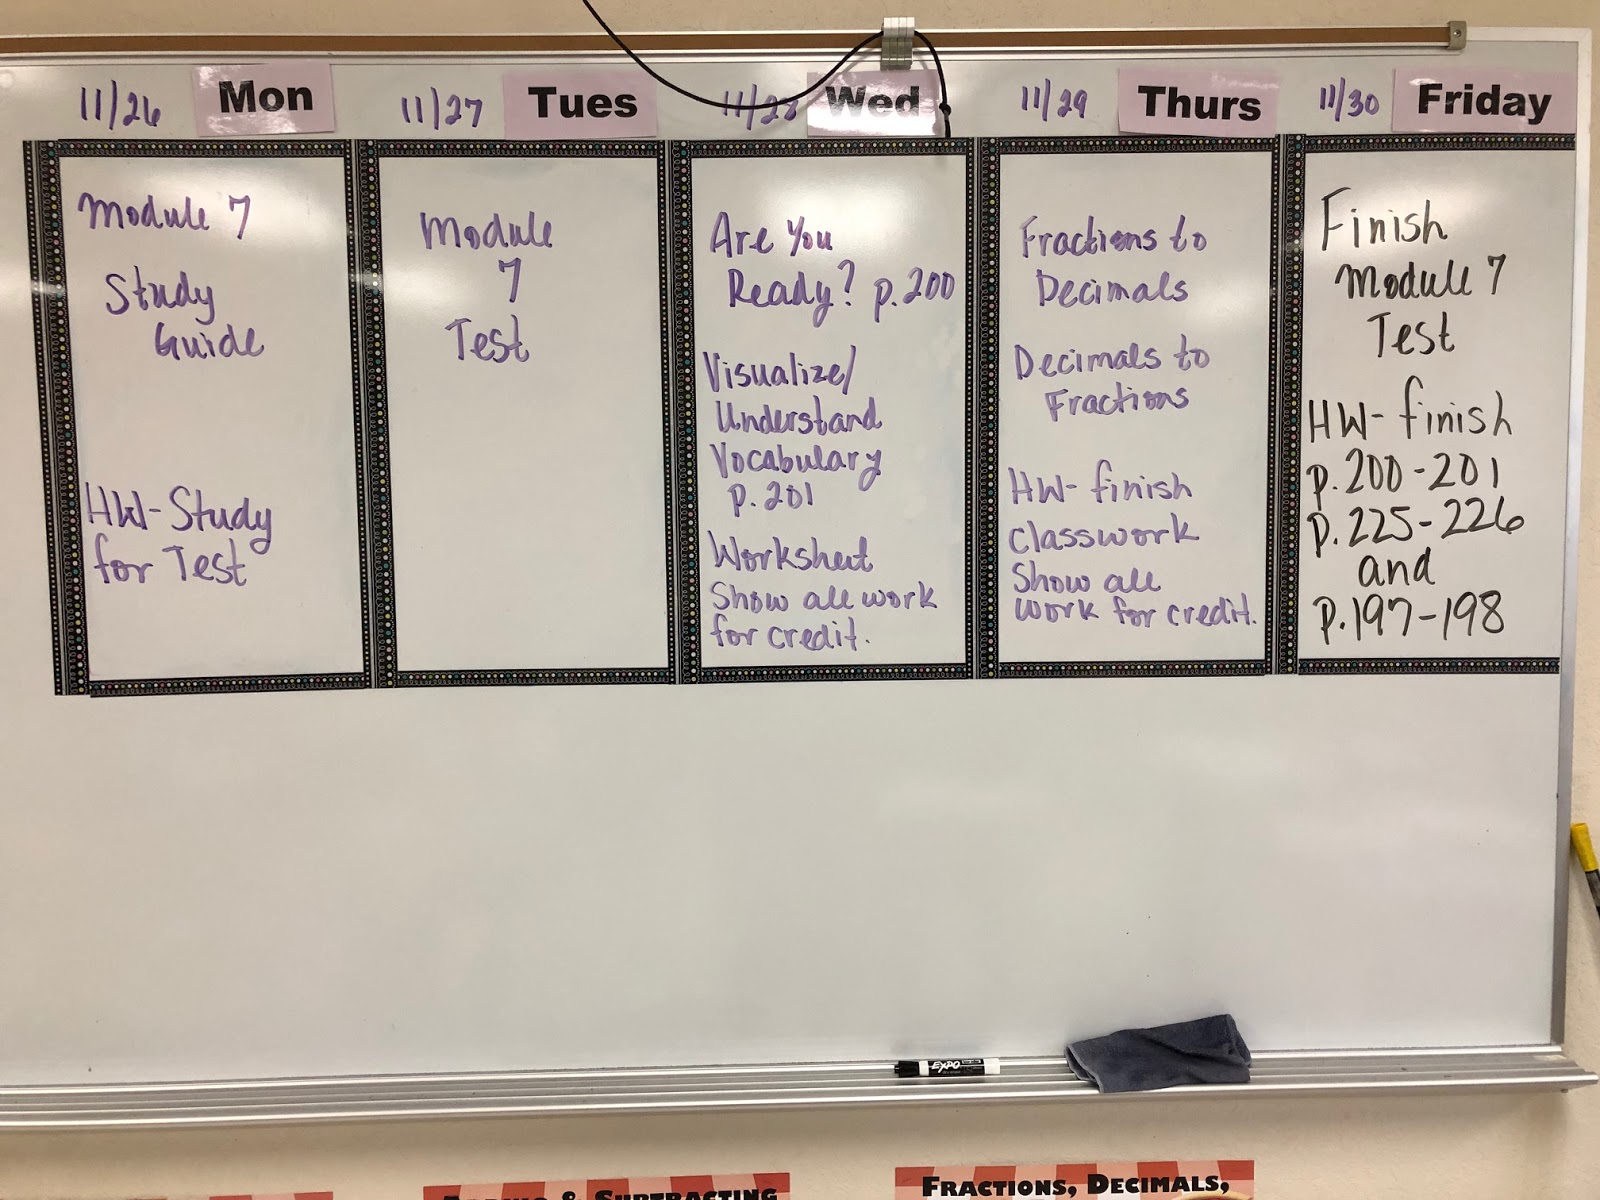 11/26 Mon
Module 7
Study
Guide
HW-Study
for Test
11/27 Tues
Module
7
Test
11/28 Wed
Are You
Ready? p.200
Visualize/
Understand
Vocabulary
p.201
Worksheet
Show all work
for credit.
11/29 Thurs
Fractions to
Decimals
Decimals to
Fractions
HW-finish
classwork
Show all
work for credit.
11/30 Friday
Finish
Module 7
Test
HW-finish
p.200-201
p.225-226
and
p.197-198
EXPO
& SUBTRACTING
FRACTIONS, DECIMALS,